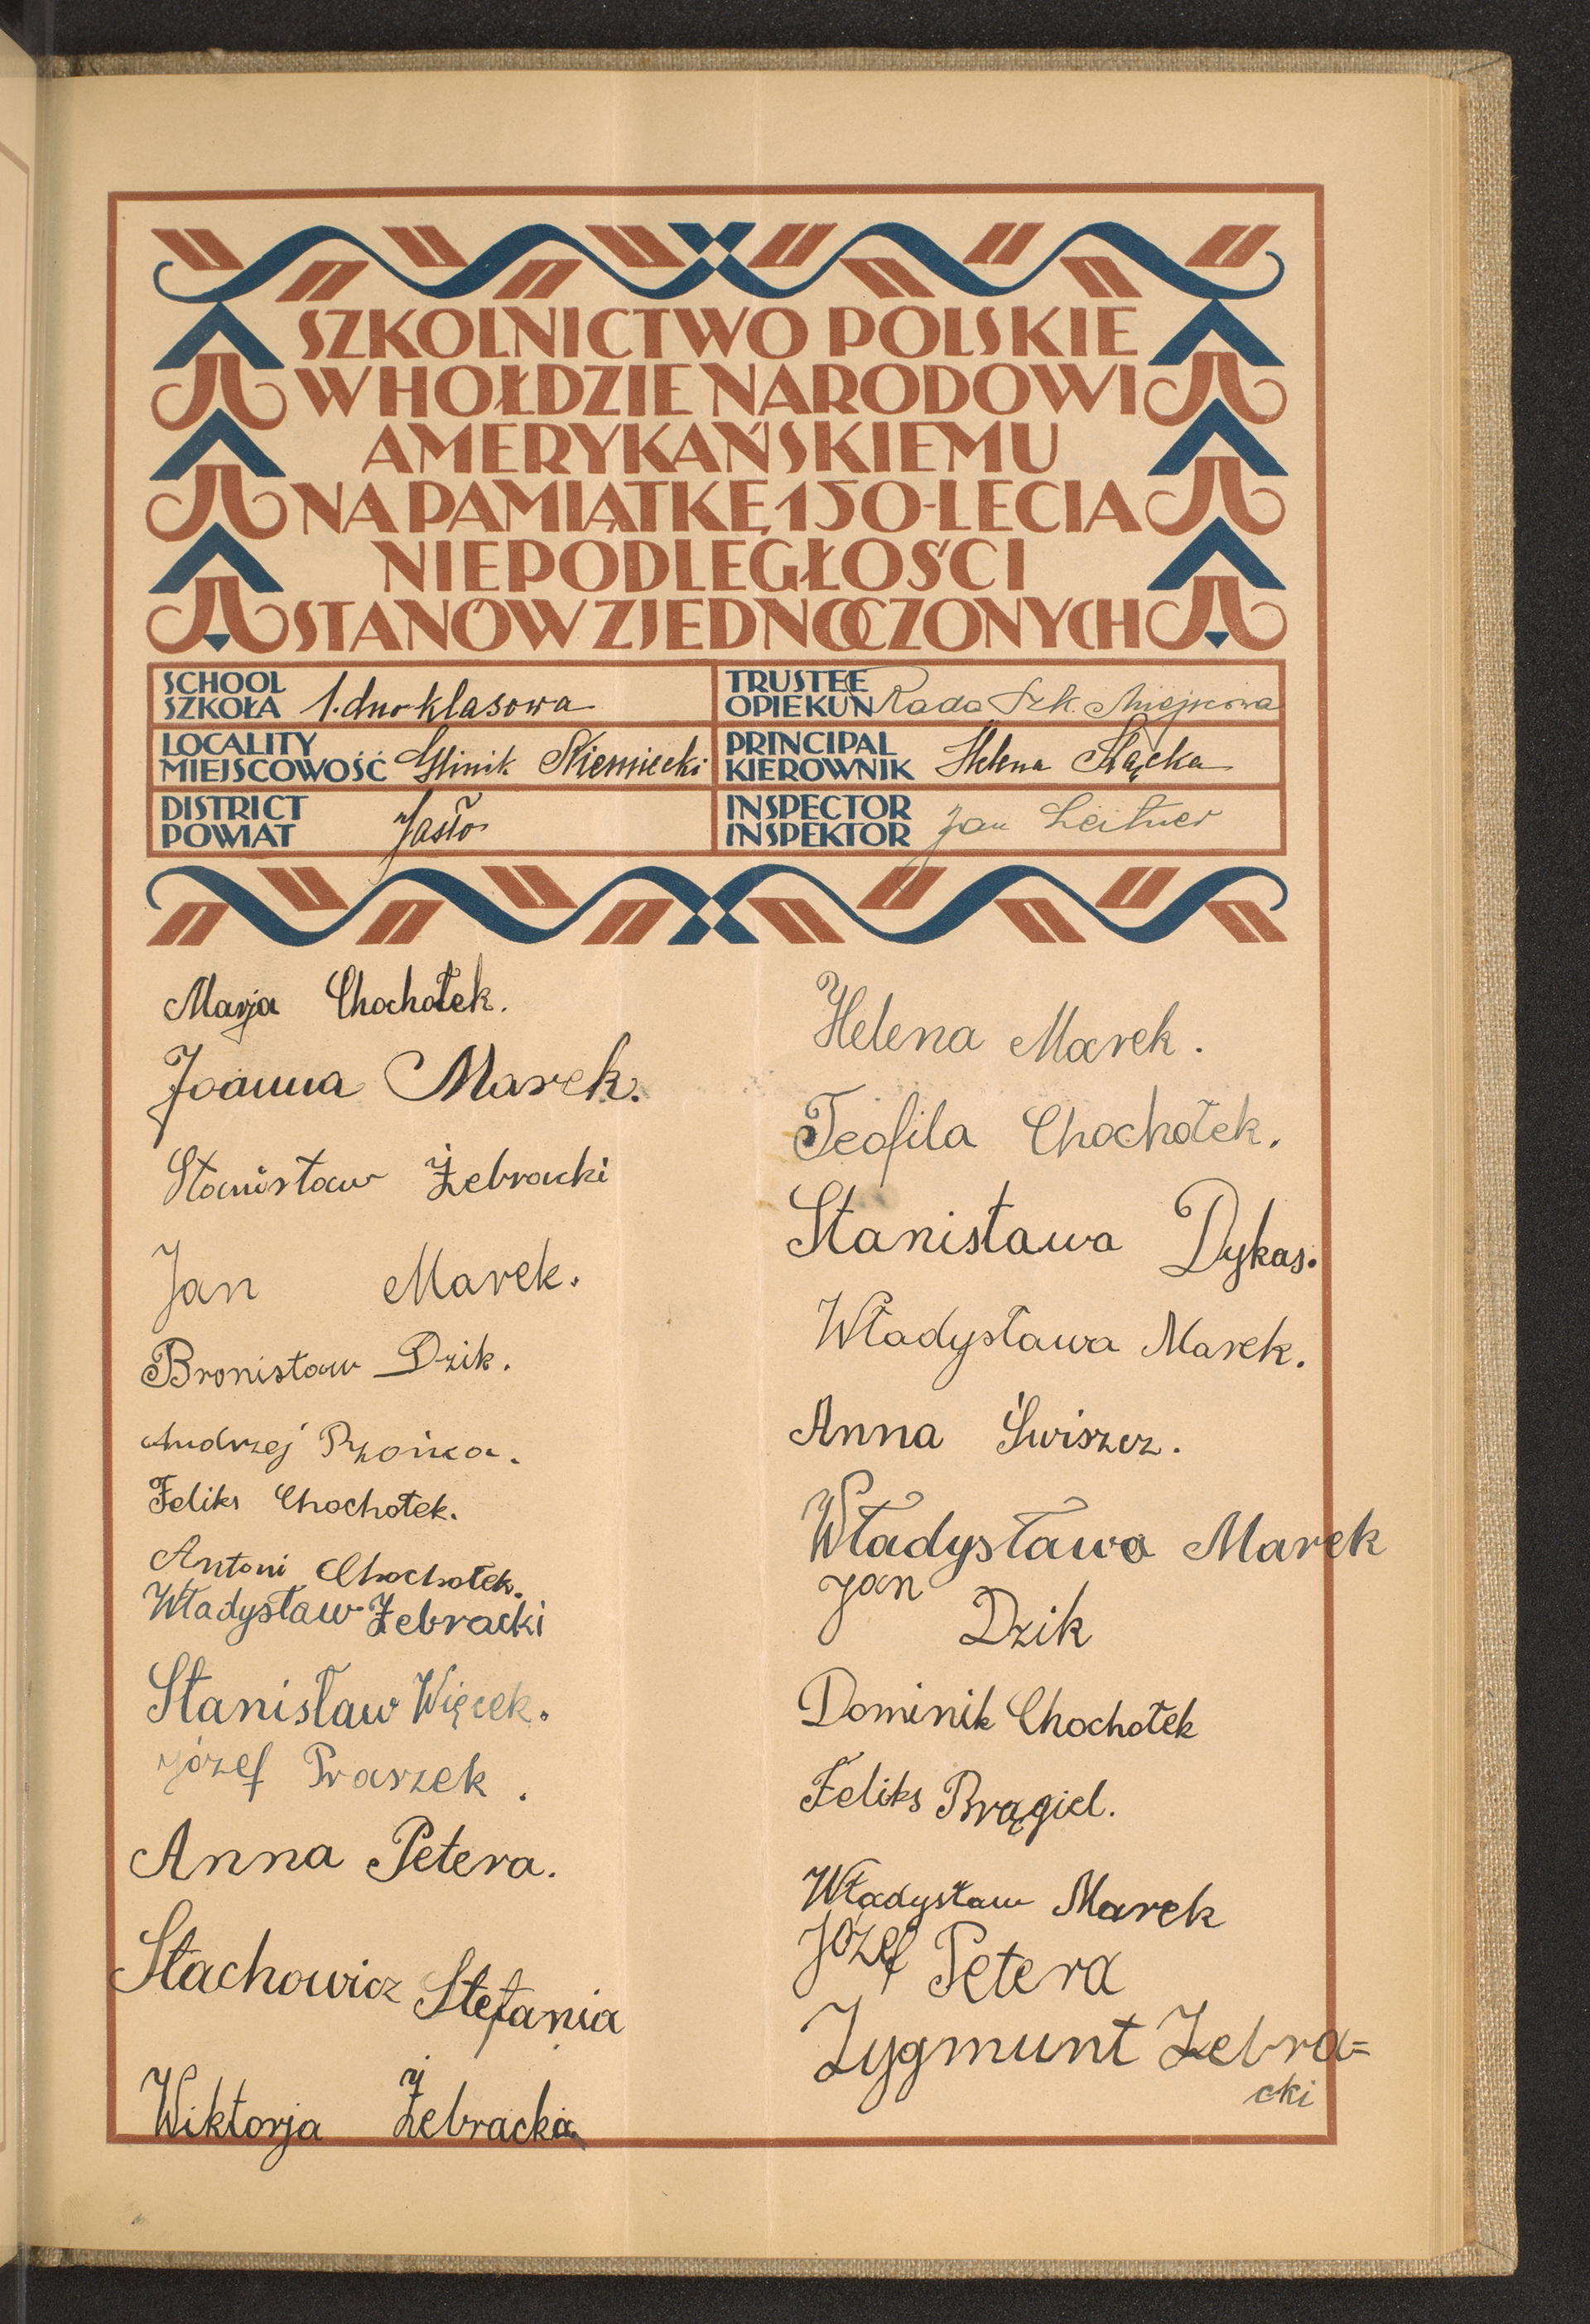 SZKOLNICTWO POLSKIE
W HOŁDZIE NARODOWI
AMERYKAŃSKIEMU
NA PAMIĄTKĘ 150-LECIA
NIEPODLEGŁOŚCI
STANÓW ZJEDNOCZONYCH
SCHOOL
SZKOŁA 1. dno klasowa
LOCALITY
MIEJSCOWOŚĆ Glinik Niemiecki
DISTRICT
POWIAT Jasło
TRUSTEE
OPIEKUN Rada Szk. Miejscowa
PRINCIPAL
KIEROWNIK Helena
INSPECTOR
INSPEKTOR Jan Leitner
Marja Chochołek.
Joanna Marek.
Stanisław Żebracki
Jan Marek.
Bronisław Dzik.
Andrzej
Feliks Chochołek.
Antoni Chochołek.
Władysław Żebracki
Stanisław Więcek.
Józef Praszek.
Anna Petera.
Stachowicz Stefania
Wiktorja Żebracka
Helena Marek.
Teofila Chochołek.
Stanisława Dykas.
Władysława Marek.
Anna Świszcz.
Władysława Marek
Jan Dzik
Dominik Chochołek
Feliks Brągiel.
Władysław Marek
Józef Petera
Zygmunt Zebra=
cki